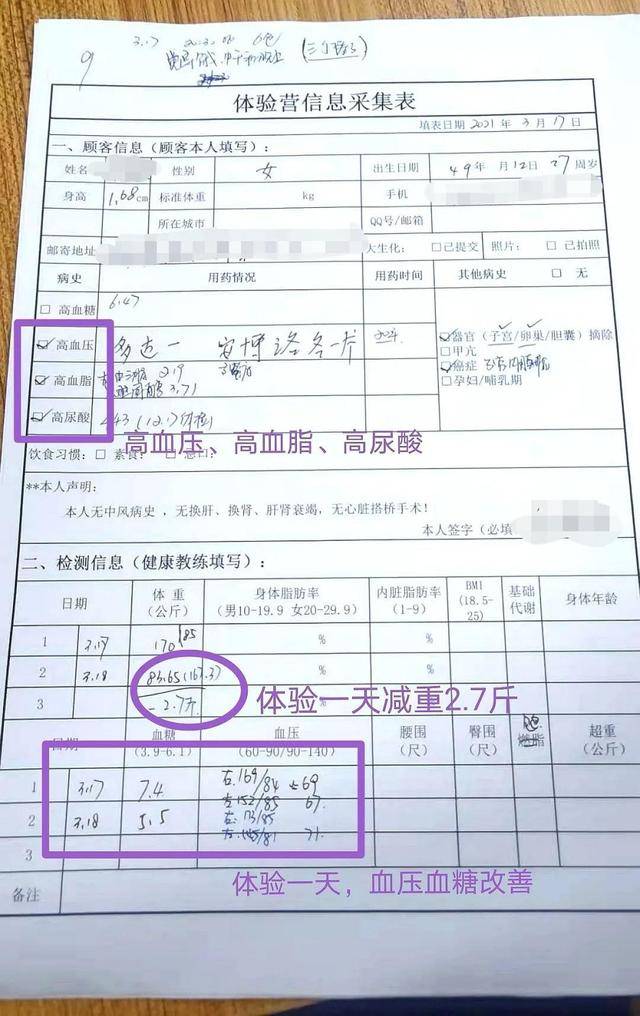 9
3.17
体验营信息采集表
填表日期 2021 年 3 月 17 日
一、顾客信息（顾客本人填写）：
姓名 性别 女 出生日期 49年 月12日 27 周岁
身高 1.68cm 标准体重 kg 手机
所在城市 QQ号/邮箱
邮寄地址 大生化： □已提交 照片： □ 已拍照
病史 用药情况 用药时间 其他病史 □ 无
□ 高血糖 6.47
☑ 高血压 一 安博洛各一片
☑ 高血脂 2.19
3.71
☑ 高尿酸 443 (12.1)体检
☑器官（子宫/卵巢/胆囊）摘除
□甲亢
☑癌症
□孕妇/哺乳期
高血压、高血脂、高尿酸
饮食习惯： □ 素食： □ 忌口：
**本人声明：
本人无中风病史 ，无换肝、换肾、肝肾衰竭，无心脏搭桥手术！
本人签字（必填
二、检测信息（健康教练填写）：
日期 体 重 （公斤） 身体脂肪率 （男10-19.9 女20-29.9） 内脏脂肪率 （1-9） BMI （18.5-25） 基础代谢 身体年龄
1 3.17 170 85 %  %
2 3.18 83.65(167.3) %  %
3 -2.7斤 %
体验一天减重2.7斤
日期 血糖 （3.9-6.1） 血压 （60-90/90-140） 腰围 （尺） 臀围 （尺） 燃脂 超重 （公斤）
1 3.17 7.4 右.169/84 69
左152/85 67.
2 3.18 5.5
71.
3
体验一天，血压血糖改善
备注